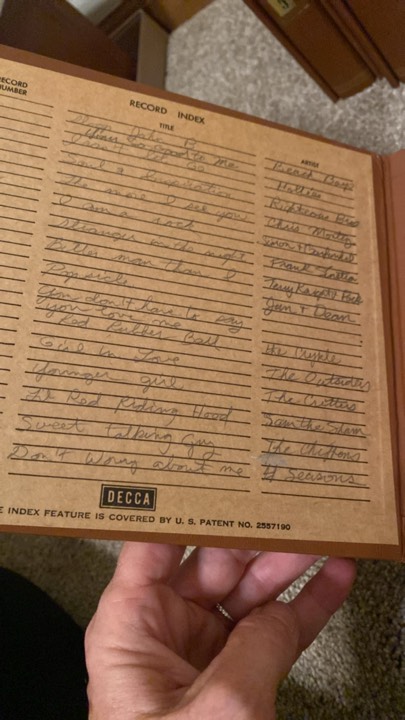 RECORD NUMBER
RECORD INDEX
TITLE
ARTIST
Beach Boys
Hollies
Righteous Bros
Soul & Inspiration
The more I see you Chris Montez
I am a rock Simon & Garfunkel
Strangers in the night Frank
Better man than I Terry Knight & Pack
Popsicle Jan & Dean
You don't have to say
you love me
Red Rubber Ball The Cyrkle
Girl in Love The Outsiders
Younger girl The Critters
Lil Red Riding Hood Sam the Sham
Sweet talking guy The Chiffons
Don't Worry about me 4 Seasons
DECCA
INDEX FEATURE IS COVERED BY U. S. PATENT NO. 2557190